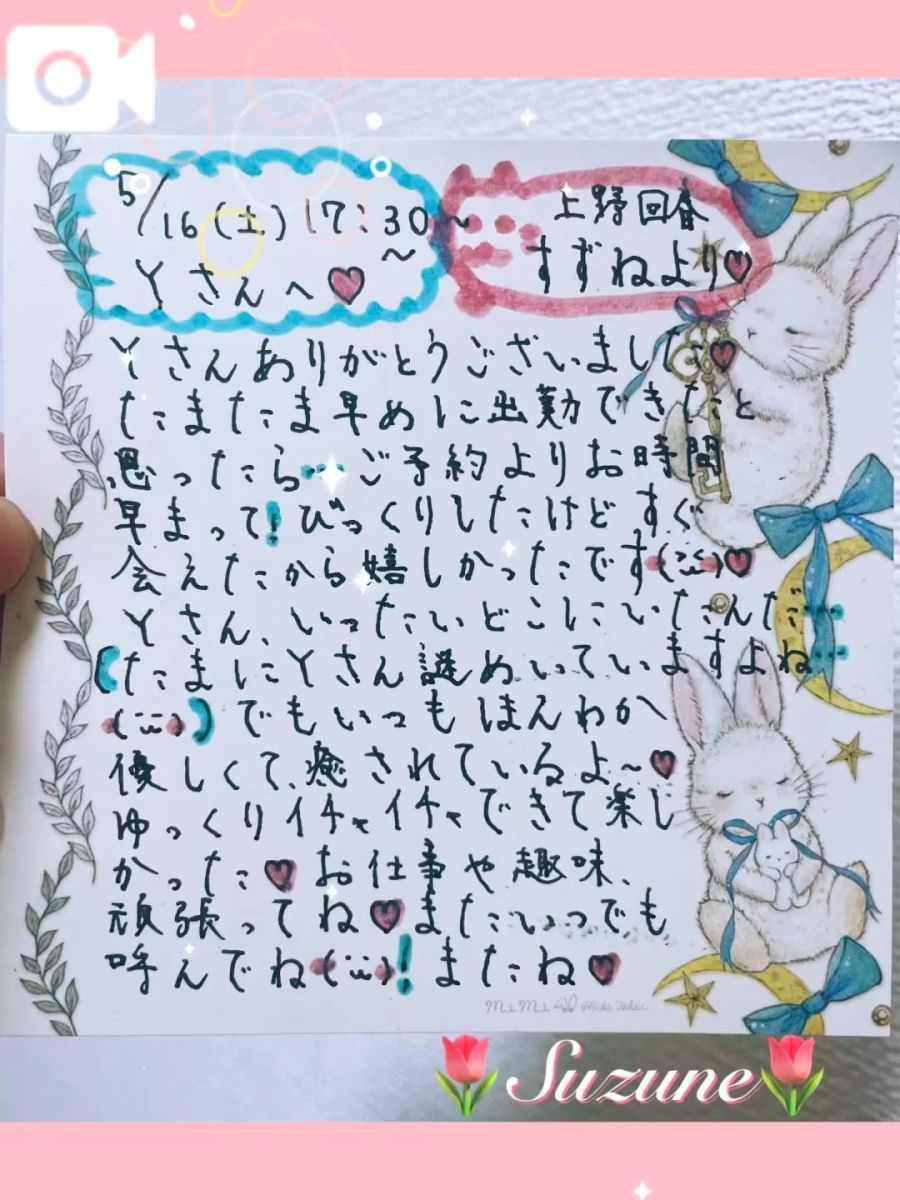 5/16(土)17:30~~
Yさんへ♥
上野回春
すずねより♡
Yさんありがとうございました♥
たまたま早めに出勤できたと
思ったら…ご予約よりお時間
早まって!びっくりしたけどすぐ
会えたから嬉しかったです♡
Yさん、いったいどこにいたんだ…
(たまにYさん謎めいていますよね…
)でもいつもほんわか
優しくて、癒されているよ~♥
ゆっくりイチャイチャできて楽し
かった♥お仕事や趣味、
頑張ってね♥またいつでも
呼んでね!またね♥
Suzune